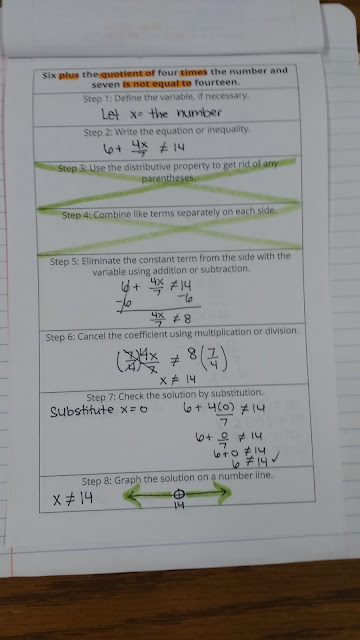 Six plus the quotient of four times the number and
seven is not equal to fourteen.
Step 1: Define the variable, if necessary.
Let x= the number
Step 2: Write the equation or inequality.
6 + 4x/7 ≠ 14
Step 3: Use the distributive property to get rid of any
parentheses.
Step 4: Combine like terms separately on each side.
Step 5: Eliminate the constant term from the side with the
variable using addition or subtraction.
6 + 4x/7 ≠ 14
-6 -6
4x/7 ≠ 8
Step 6: Cancel the coefficient using multiplication or division.
(7/4) 4x/7 ≠ 8 (7/4)
x ≠ 14
Step 7: Check the solution by substitution.
Substitute x=0 6 + 4(0)/7 ≠ 14
6 + 0/7 ≠ 14
6+0 ≠ 14
6 ≠ 14 ✓
Step 8: Graph the solution on a number line.
x ≠ 14
14